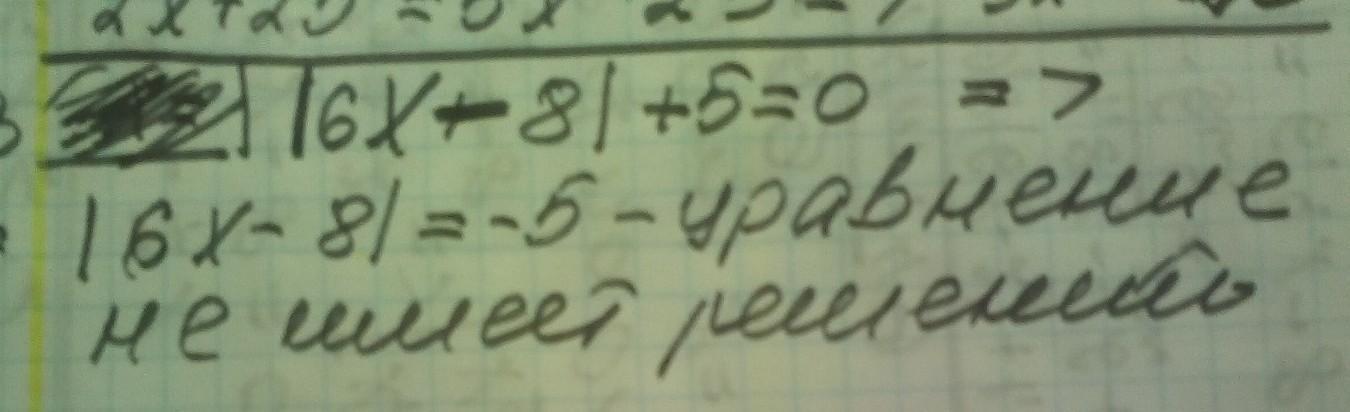 |6x - 8| + 5 = 0 =>
|6x - 8| = -5 - уравнение
не имеет решений